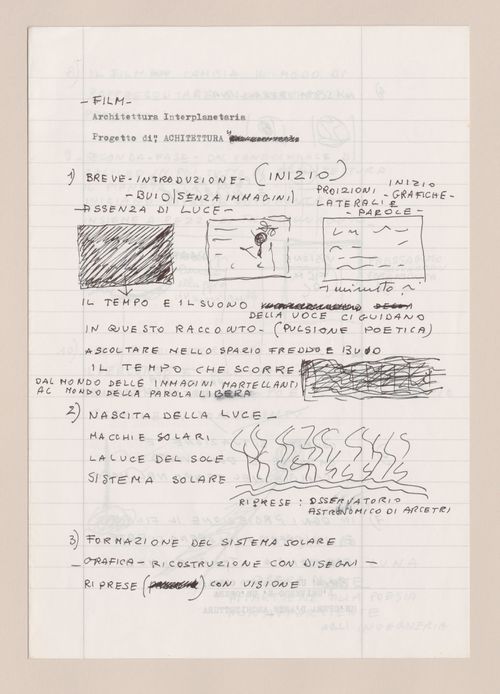 - FILM -
Architettura Interplanetaria
Progetto di" ACHITETTURA "
1) BREVE - INTRODUZIONE - (INIZIO)
- BUIO (SENZA IMMAGINI)
ASSENZA DI LUCE -
INIZIO
PROIZIONI - GRAFICHE -
LATERALI E
- PAROLE -
1 minuto
IL TEMPO E IL SUONO
DELLA VOCE CI GUIDANO
IN QUESTO RACCONTO - (PULSIONE POETICA)
ASCOLTARE NELLO SPAZIO FREDDO E BUIO
IL TEMPO CHE SCORRE
DAL MONDO DELLE IMMAGINI MARTELLANTI
AL MONDO DELLA PAROLA LIBERA
2) NASCITA DELLA LUCE -
MACCHIE SOLARI
LA LUCE DEL SOLE
SISTEMA SOLARE
RIPRESE : OSSERVATORIO
ASTRONOMICO DI ARCETRI
3) FORMAZIONE DEL SISTEMA SOLARE
- GRAFICA - RICOSTRUZIONE CON DISEGNI -
RIPRESE ( ) CON VISIONE